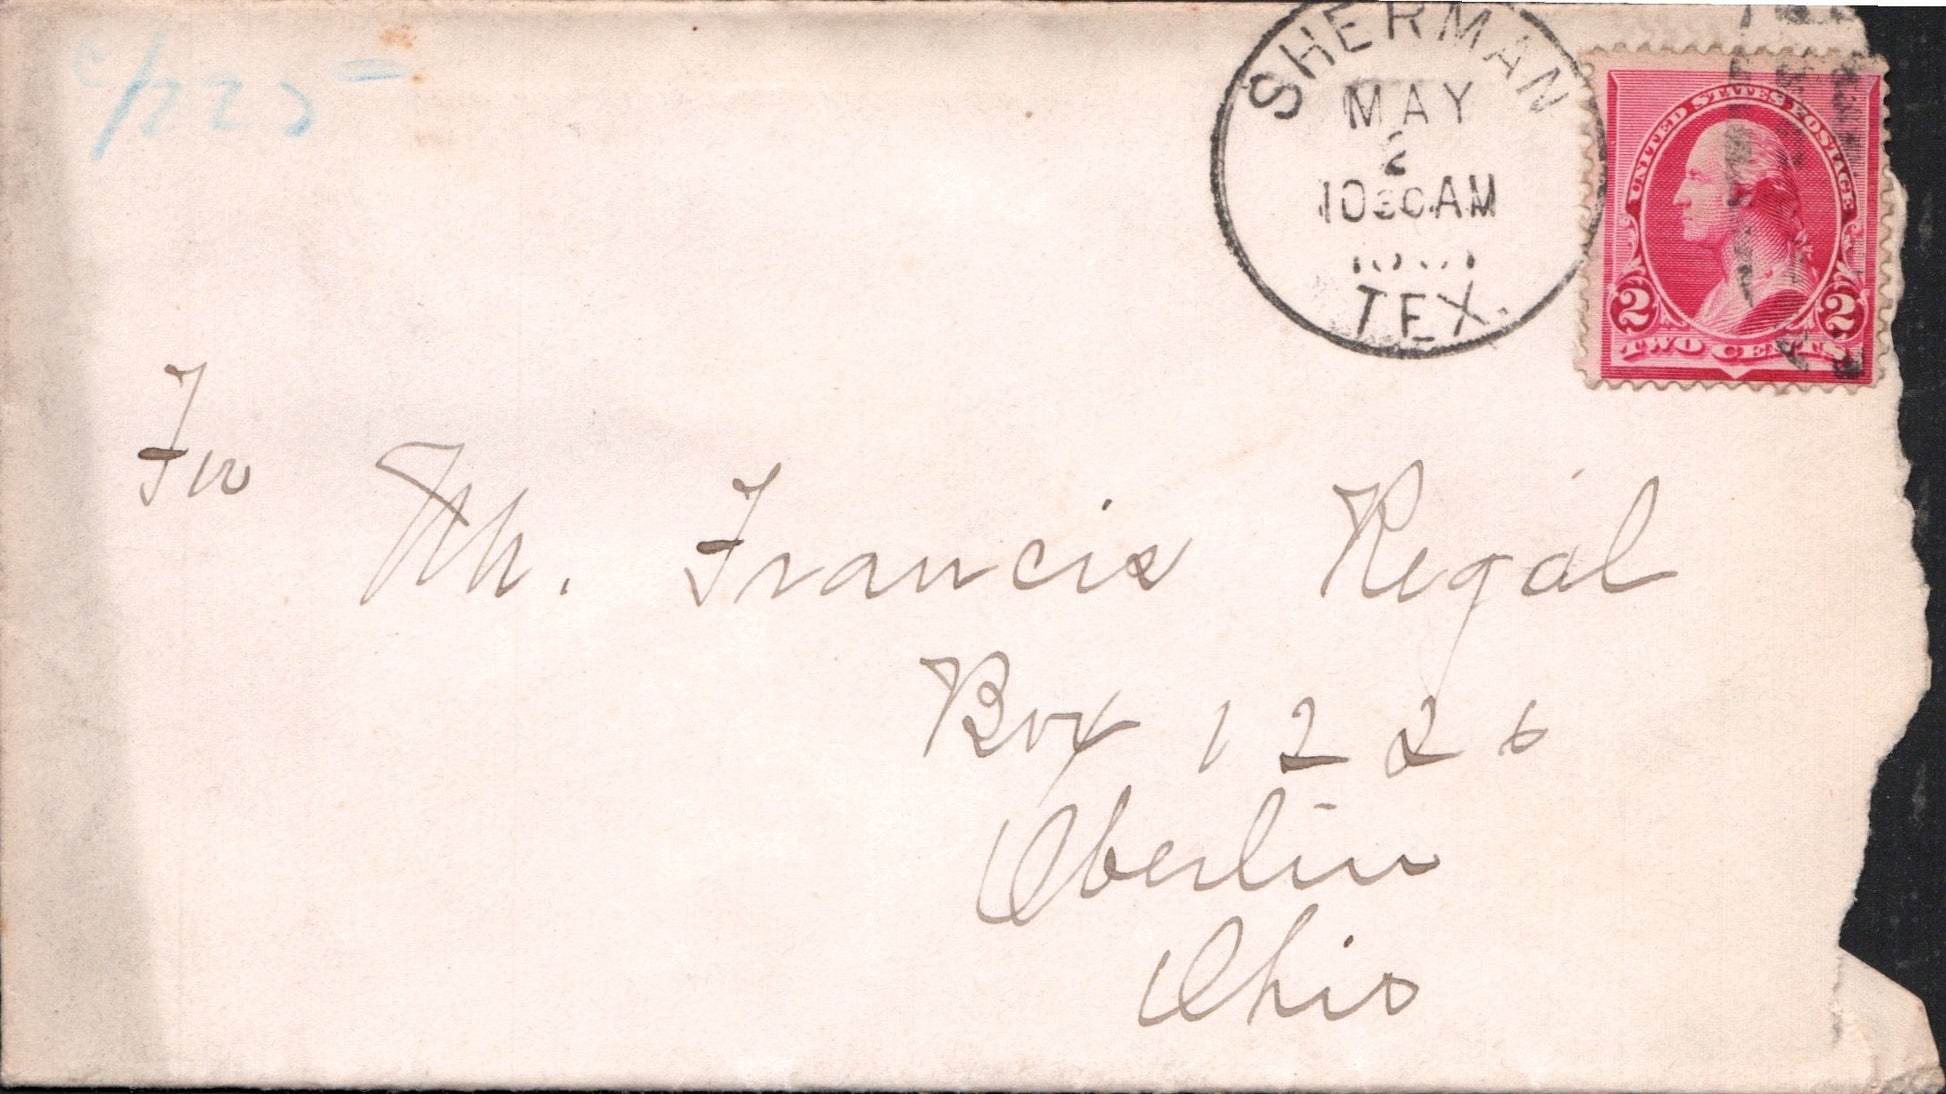 SHERMAN
MAY
2
1030AM
TEX.
UNITED STATES POSTAGE
2 2
TWO CENTS
To
Mr. Francis Regal
Box 1226
Oberlin
Ohio